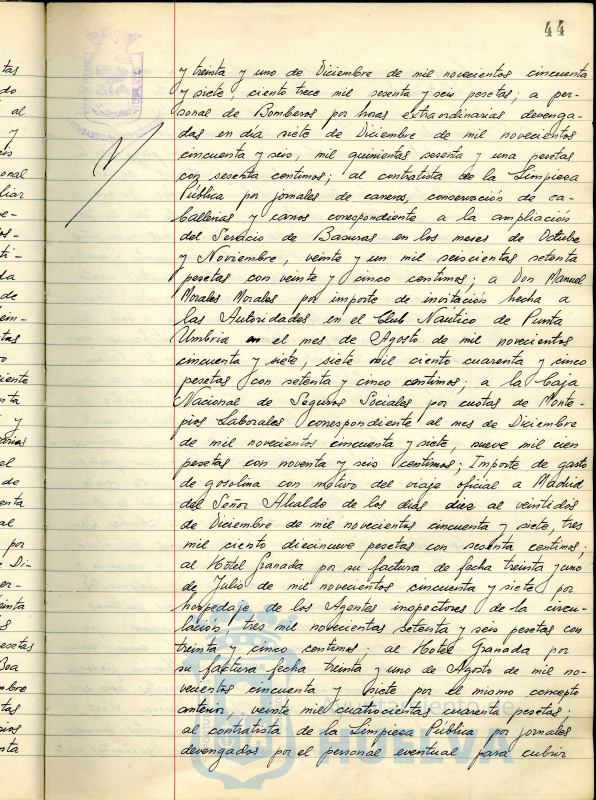 44
y treinta y uno de Diciembre de mil novecientos cincuenta
y siete, ciento trece mil sesenta y seis pesetas; a per-
sonal de Bomberos por horas extraordinarias devenga-
das en dia siete de Diciembre de mil novecientos
cincuenta y seis, mil quinientas sesenta y una pesetas
con sesenta centimos; al contratista de la Limpieza
Pública por jornales de carreros, conservación de ca-
ballerias y carros correspondiente a la ampliación
del Servicio de Basuras en los meses de Octubre
y Noviembre, veinte y un mil seiscientas setenta
pesetas con veinte y cinco centimos; a Don Manuel
Morales Morales por importe de invitación hecha a
las Autoridades en el Club Nautico de Punta
Umbria en el mes de Agosto de mil novecientos
cincuenta y siete, siete mil ciento cuarenta y cinco
pesetas con setenta y cinco centimos; a la Caja
Nacional de Seguros Sociales por cuotas de Monte-
pios Laborales correspondiente al mes de Diciembre
de mil novecientos cincuenta y siete, nueve mil cien
pesetas con noventa y seis centimos; Importe de gasto
de gasolina con motivo del viaje oficial a Madrid
del Señor Alcalde de los dias diez al veintidos
de Diciembre de mil novecientos cincuenta y siete, tres
mil ciento diecinueve pesetas con sesenta centimos;
al Hotel Granada por su factura de fecha treinta y uno
de Julio de mil novecientos cincuenta y siete por
hospedaje de los Agentes inspectores de la circu-
lación, tres mil novecientas setenta y seis pesetas con
treinta y cinco centimos; al Hotel Granada por
su factura fecha treinta y uno de Agosto de mil no-
vecientos cincuenta y siete por el mismo concepto
anterior, veinte mil cuatrocientas cuarenta pesetas;
al contratista de la Limpieza Pública por jornales
devengados por el personal eventual para cubrir